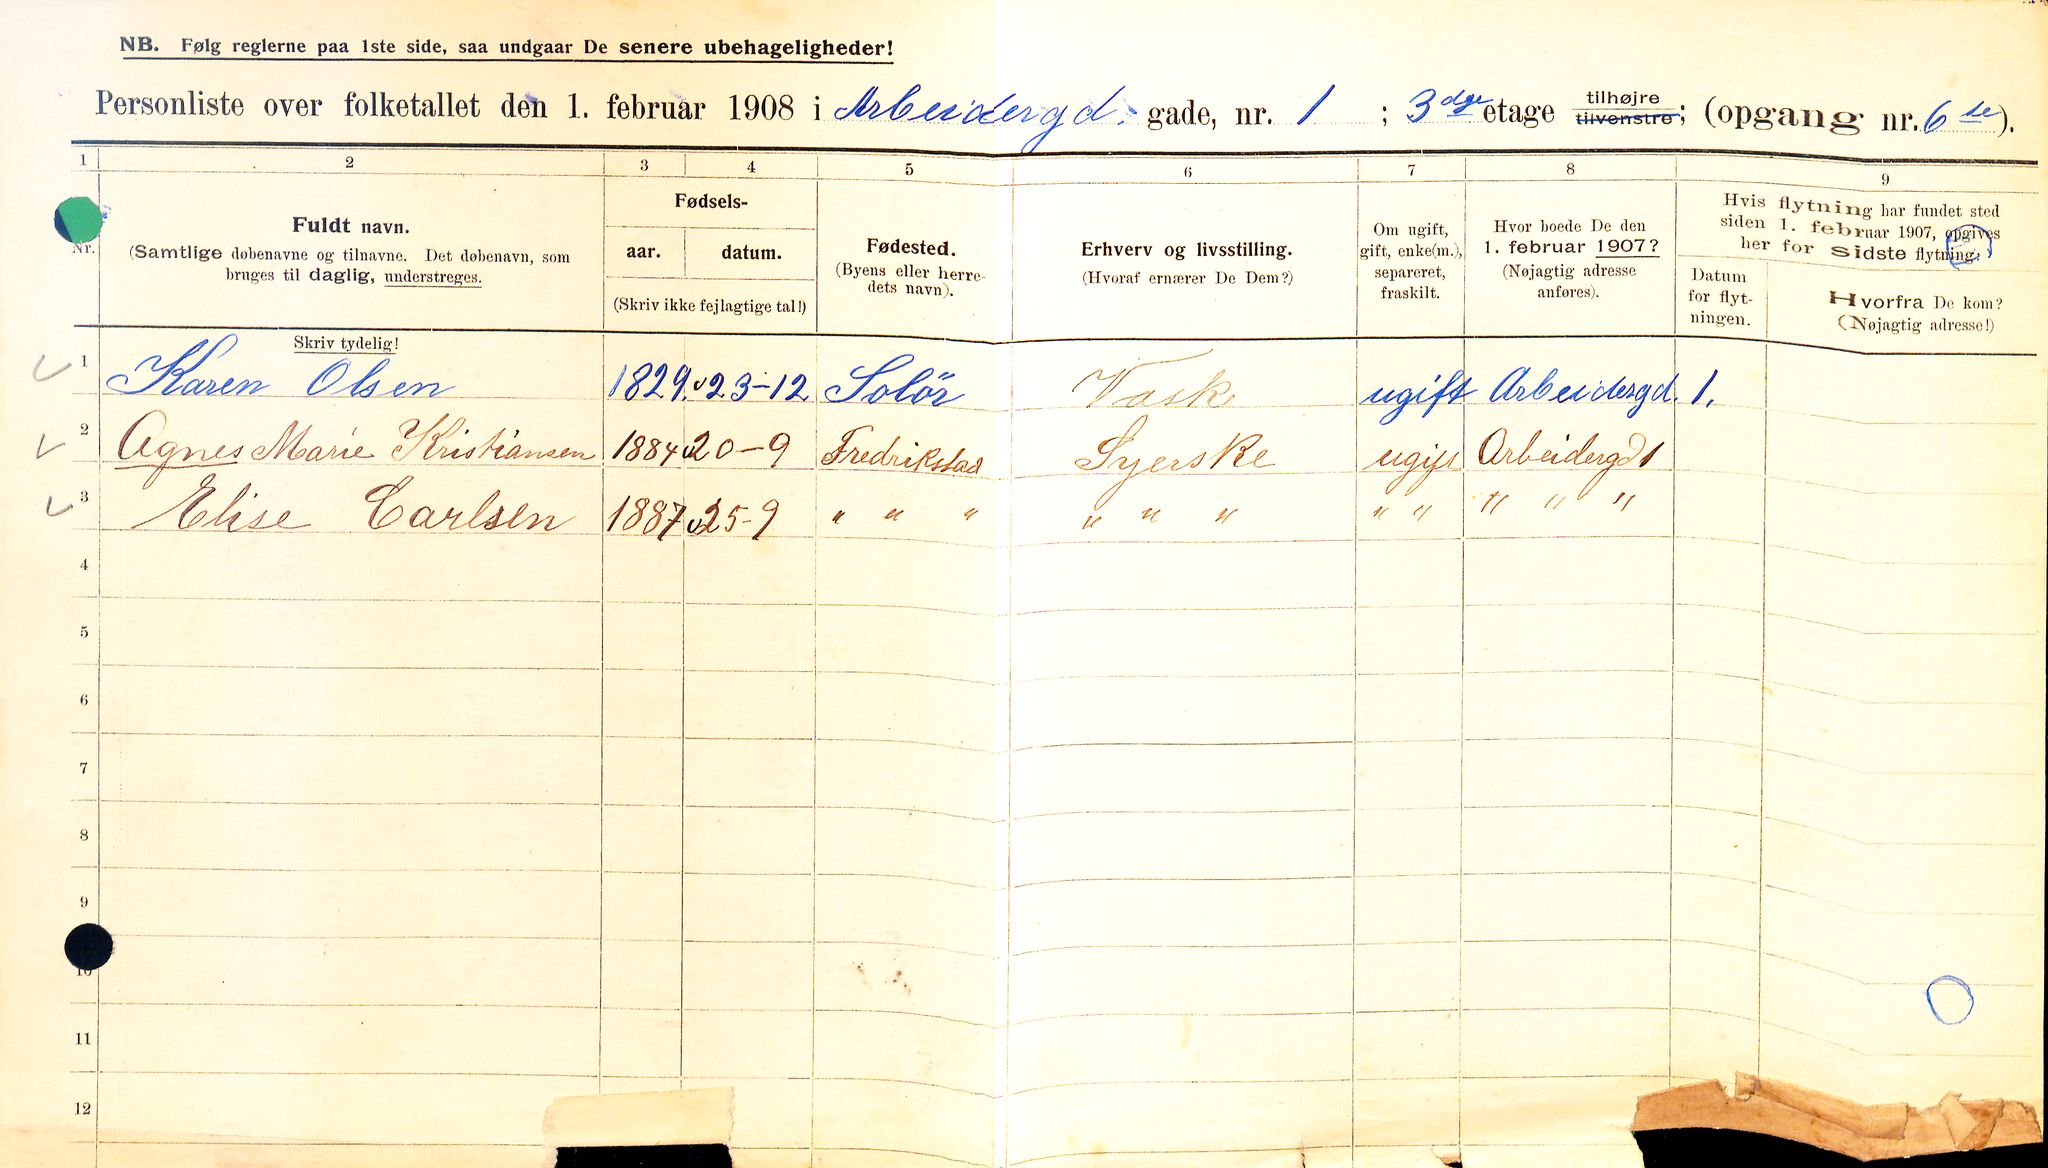 NB. Følg reglerne paa 1ste side, saa undgaar De senere ubehageligheder!
Personliste over folketallet den 1. februar 1908 i Arbeidergd. gade, nr. 1 ; 3dge etage tilhøjre tilvenstre; (opgang nr. 6te).
1 2 3 4 5 6 7 8 9
Nr.
Fuldt navn.
(Samtlige døbenavne og tilnavne. Det døbenavn, som
bruges til daglig, understreges.
Skriv tydelig!
Fødsels-
aar. datum.
(Skriv ikke fejlagtige tal!)
Fødested.
(Byens eller herre-
dets navn).
Erhverv og livsstilling.
(Hvoraf ernærer De Dem?)
Om ugift,
gift, enke(m.),
separeret,
fraskilt.
Hvor boede De den
1. februar 1907?
(Nøjagtig adresse
anføres).
Hvis flytning har fundet sted
siden 1. februar 1907, opgives
her for sidste flytning:
Datum
for flyt-
ningen.
Hvorfra De kom?
(Nøjagtig adresse!)
1 Karen Olsen 1829. 23-12 Solör Vaske ugift Arbeidergd. 1.
2 Agnes Marie Kristiansen 1884 20-9 Fredrikstad Syerske ugift Arbeidergd 1
3 Elise Carlsen 1887 25-9 " " " " " " " " " " "
4
5
6
7
8
9
10
11
12